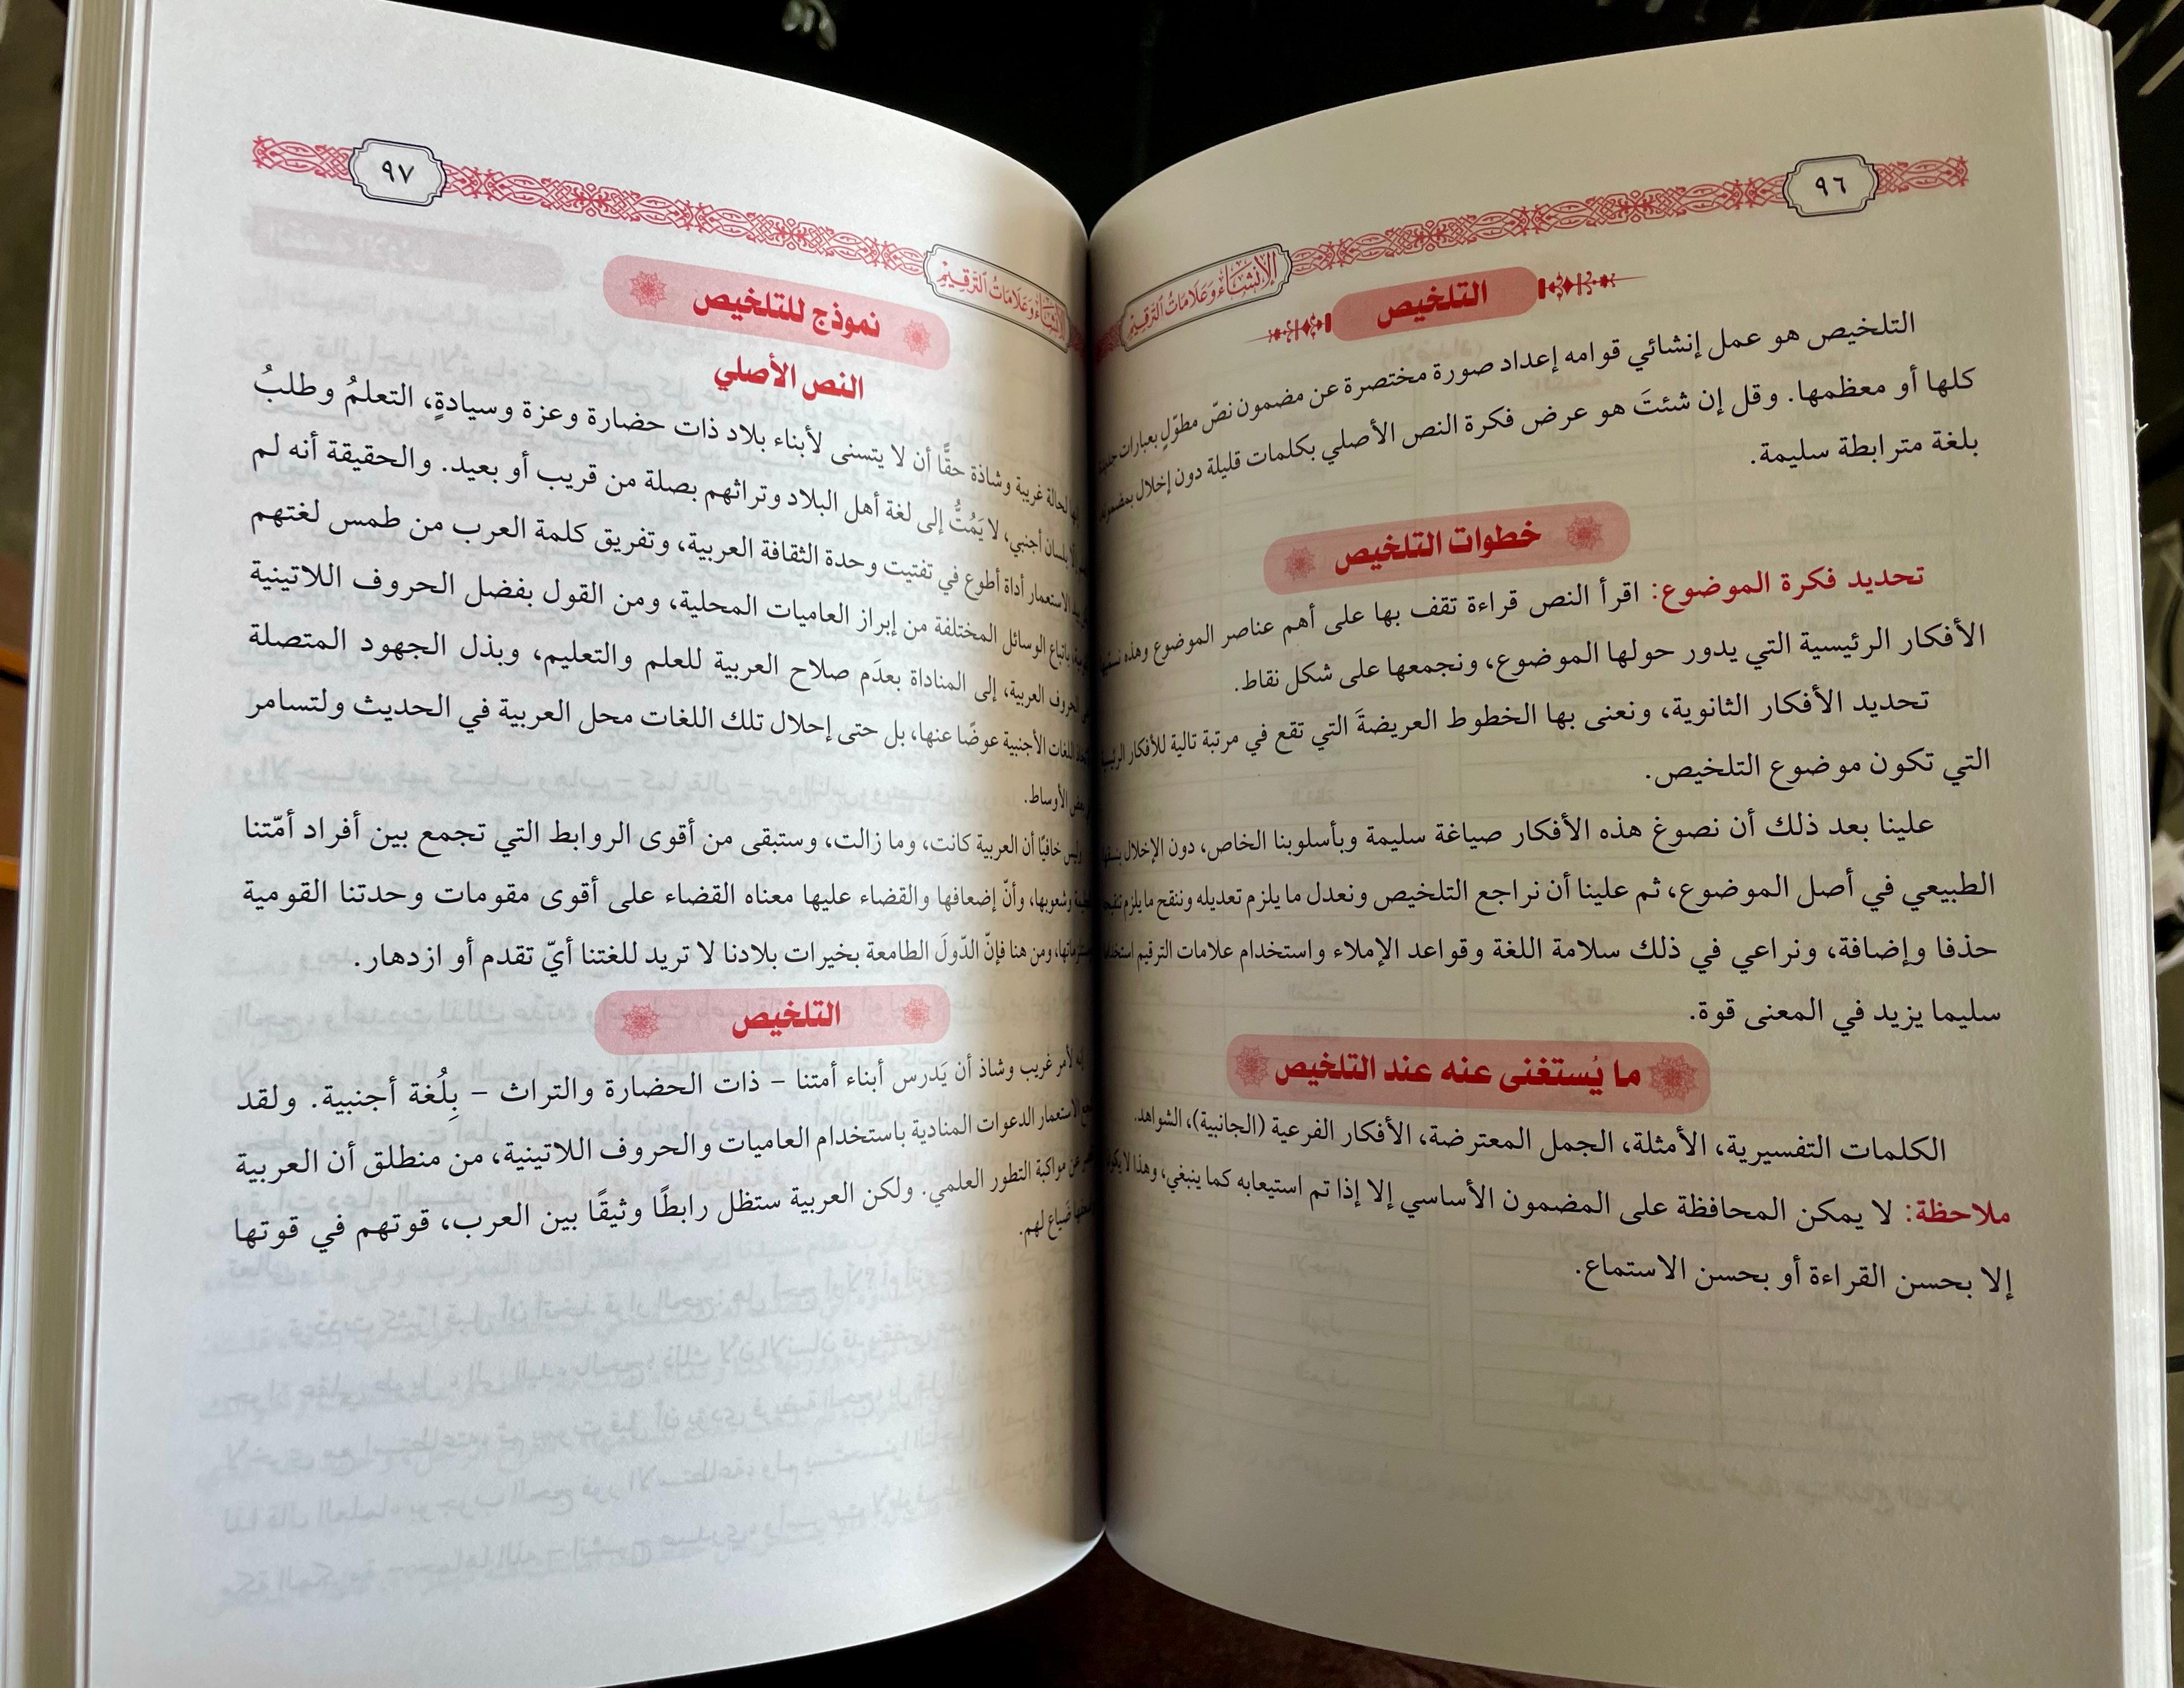 ٩٦
الإنشاء وعلامات الترقيم
التلخيص
التلخيص هو عمل إنشائي قوامه إعداد صورة مختصرة عن مضمون نصّ مطوّلٍ بعبارات
كلها أو معظمها. وقل إن شئتَ هو عرض فكرة النص الأصلي بكلمات قليلة دون إخلال
بلغة مترابطة سليمة.
خطوات التلخيص
تحديد فكرة الموضوع: اقرأ النص قراءة تقف بها على أهم عناصر الموضوع وهذه
الأفكار الرئيسية التي يدور حولها الموضوع، ونجمعها على شكل نقاط.
تحديد الأفكار الثانوية، ونعنى بها الخطوط العريضةَ التي تقع في مرتبة تالية للأفكار
التي تكون موضوع التلخيص.
علينا بعد ذلك أن نصوغ هذه الأفكار صياغة سليمة وبأسلوبنا الخاص، دون الإخلال
الطبيعي في أصل الموضوع، ثم علينا أن نراجع التلخيص ونعدل ما يلزم تعديله وننقح ما يلزم
حذفا وإضافة، ونراعي في ذلك سلامة اللغة وقواعد الإملاء واستخدام علامات الترقيم
سليما يزيد في المعنى قوة.
ما يُستغنى عنه عند التلخيص
الكلمات التفسيرية، الأمثلة، الجمل المعترضة، الأفكار الفرعية (الجانبية)، الشواهد.
ملاحظة: لا يمكن المحافظة على المضمون الأساسي إلا إذا تم استيعابه كما ينبغي، وهذا
إلا بحسن القراءة أو بحسن الاستماع.
٩٧
وعلامات الترقيم
نموذج للتلخيص
النص الأصلي
لحالة غريبة وشاذة حقًّا أن لا يتسنى لأبناء بلاد ذات حضارة وعزة وسيادةٍ، التعلمُ وطلبُ
بلسان أجنبي، لا يَمُتُّ إلى لغة أهل البلاد وتراثهم بصلة من قريب أو بعيد. والحقيقة أنه لم
الاستعمار أداة أطوع في تفتيت وحدة الثقافة العربية، وتفريق كلمة العرب من طمس لغتهم
باتباع الوسائل المختلفة من إبراز العاميات المحلية، ومن القول بفضل الحروف اللاتينية
الحروف العربية، إلى المناداة بعدَم صلاح العربية للعلم والتعليم، وبذل الجهود المتصلة
اللغات الأجنبية عوضًا عنها، بل حتى إحلال تلك اللغات محل العربية في الحديث ولتسامر
الأوساط.
خافيًا أن العربية كانت، وما زالت، وستبقى من أقوى الروابط التي تجمع بين أفراد أمّتنا
وشعوبها، وأنّ إضعافها والقضاء عليها معناه القضاء على أقوى مقومات وحدتنا القومية
ومن هنا فإنّ الدّولَ الطامعة بخيرات بلادنا لا تريد للغتنا أيّ تقدم أو ازدهار.
التلخيص
لأمر غريب وشاذ أن يَدرس أبناء أمتنا – ذات الحضارة والتراث – بِلُغة أجنبية. ولقد
الاستعمار الدعوات المنادية باستخدام العاميات والحروف اللاتينية، من منطلق أن العربية
عن مواكبة التطور العلمي. ولكن العربية ستظل رابطًا وثيقًا بين العرب، قوتهم في قوتها
ضَياع لهم.